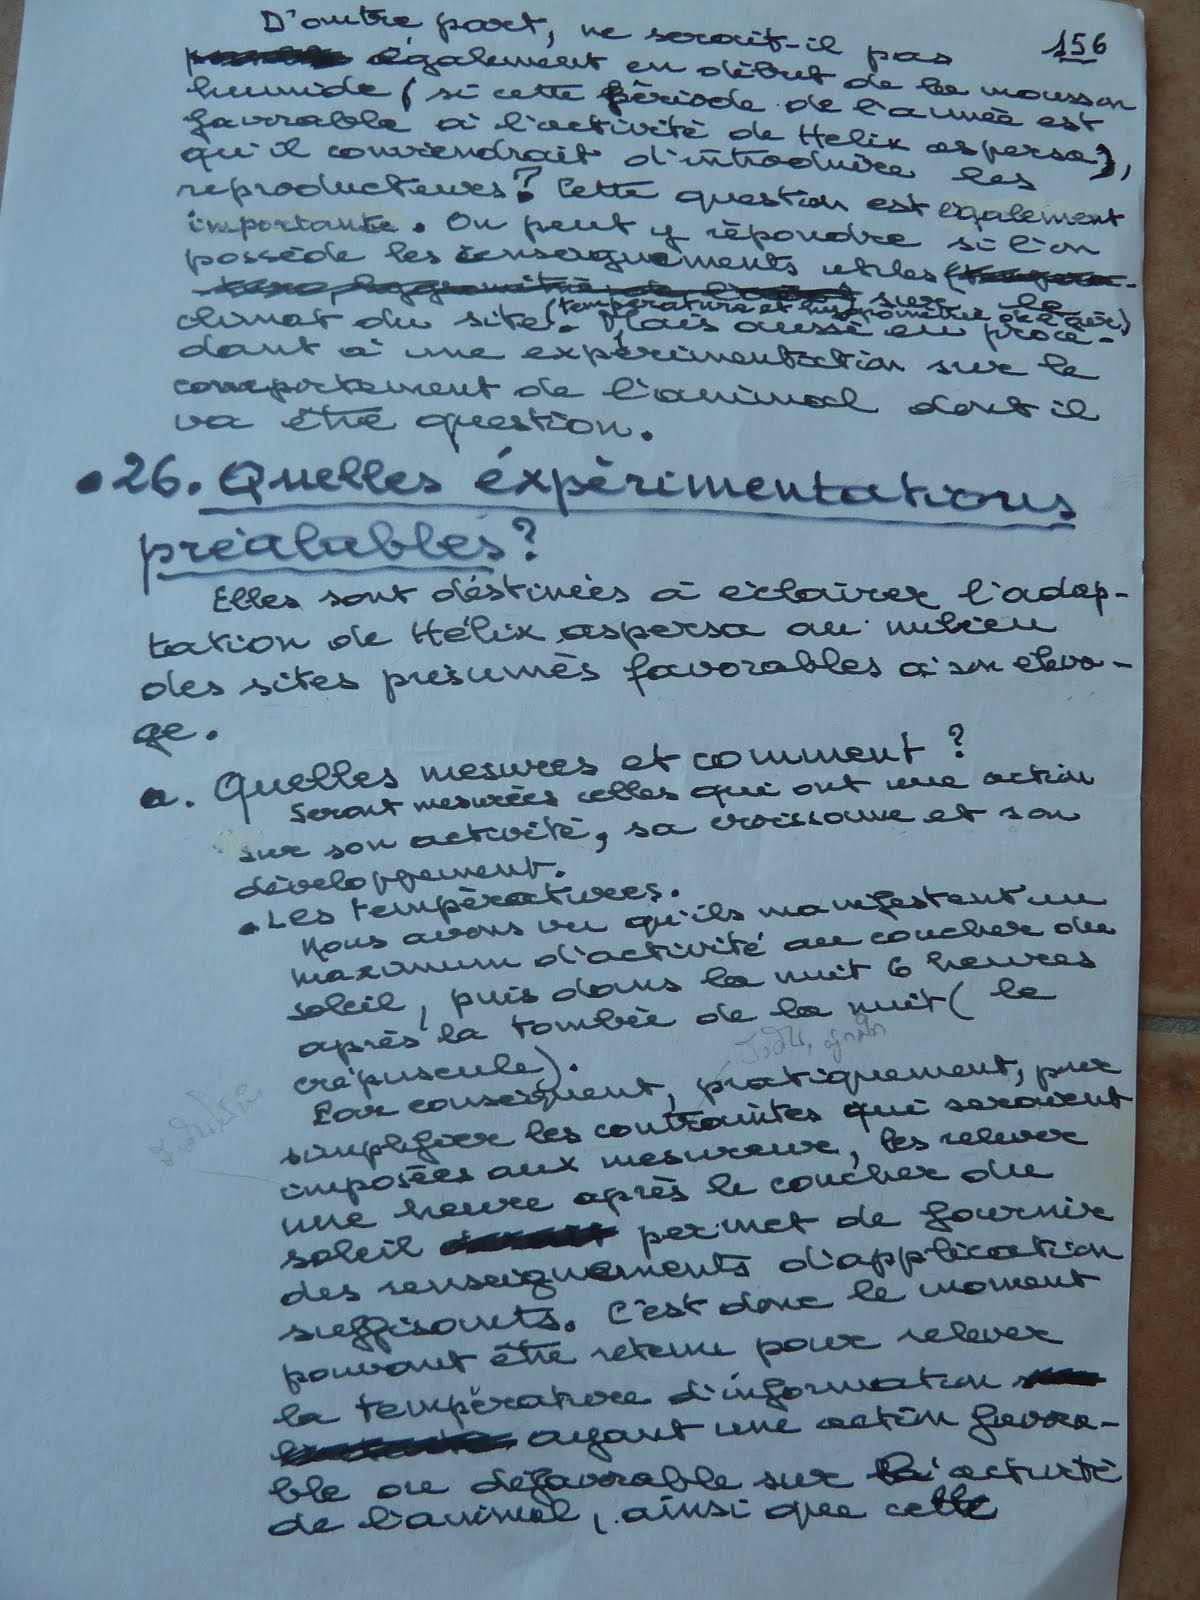 156
D'autre part, ne serait-il pas
également en début de la mousson
humide (si cette période de l'année est
favorable à l'activité de Helix aspersa),
qu'il conviendrait d'introduire les
reproducteurs? Cette question est également
importante. On peut y répondre si l'on
possède les renseignements utiles
sur le
(température et hygrométrie de l'air)
climat du site. Mais aussi en procé-
dant à une expérimentation sur le
comportement de l'animal dont il
va être question.
• 26. Quelles éxpérimentations
préalables?
Elles sont déstinées à éclairer l'adap-
tation de Hélix aspersa au milieu
des sites présumés favorables à son éleva-
ge.
a. Quelles mesures et comment?
Seront mesurées celles qui ont une action
sur son activité, sa croissance et son
développement.
• Les températures.
Nous avons vu qu'ils manifestent un
maximum d'activité au coucher du
soleil, puis dans la nuit 6 heures
après la tombée de la nuit (le
crépuscule).
Par conséquent, pratiquement, pour
simplifier les contraintes qui seraient
imposées aux mesureur, les relever
une heure après le coucher du
soleil permet de fournir
des renseignements d'application
suffisants. C'est donc le moment
pouvant être retenu pour relever
la température d'information
ayant une action favora-
ble ou défavorable sur l'activité
de l'animal, ainsi que cette